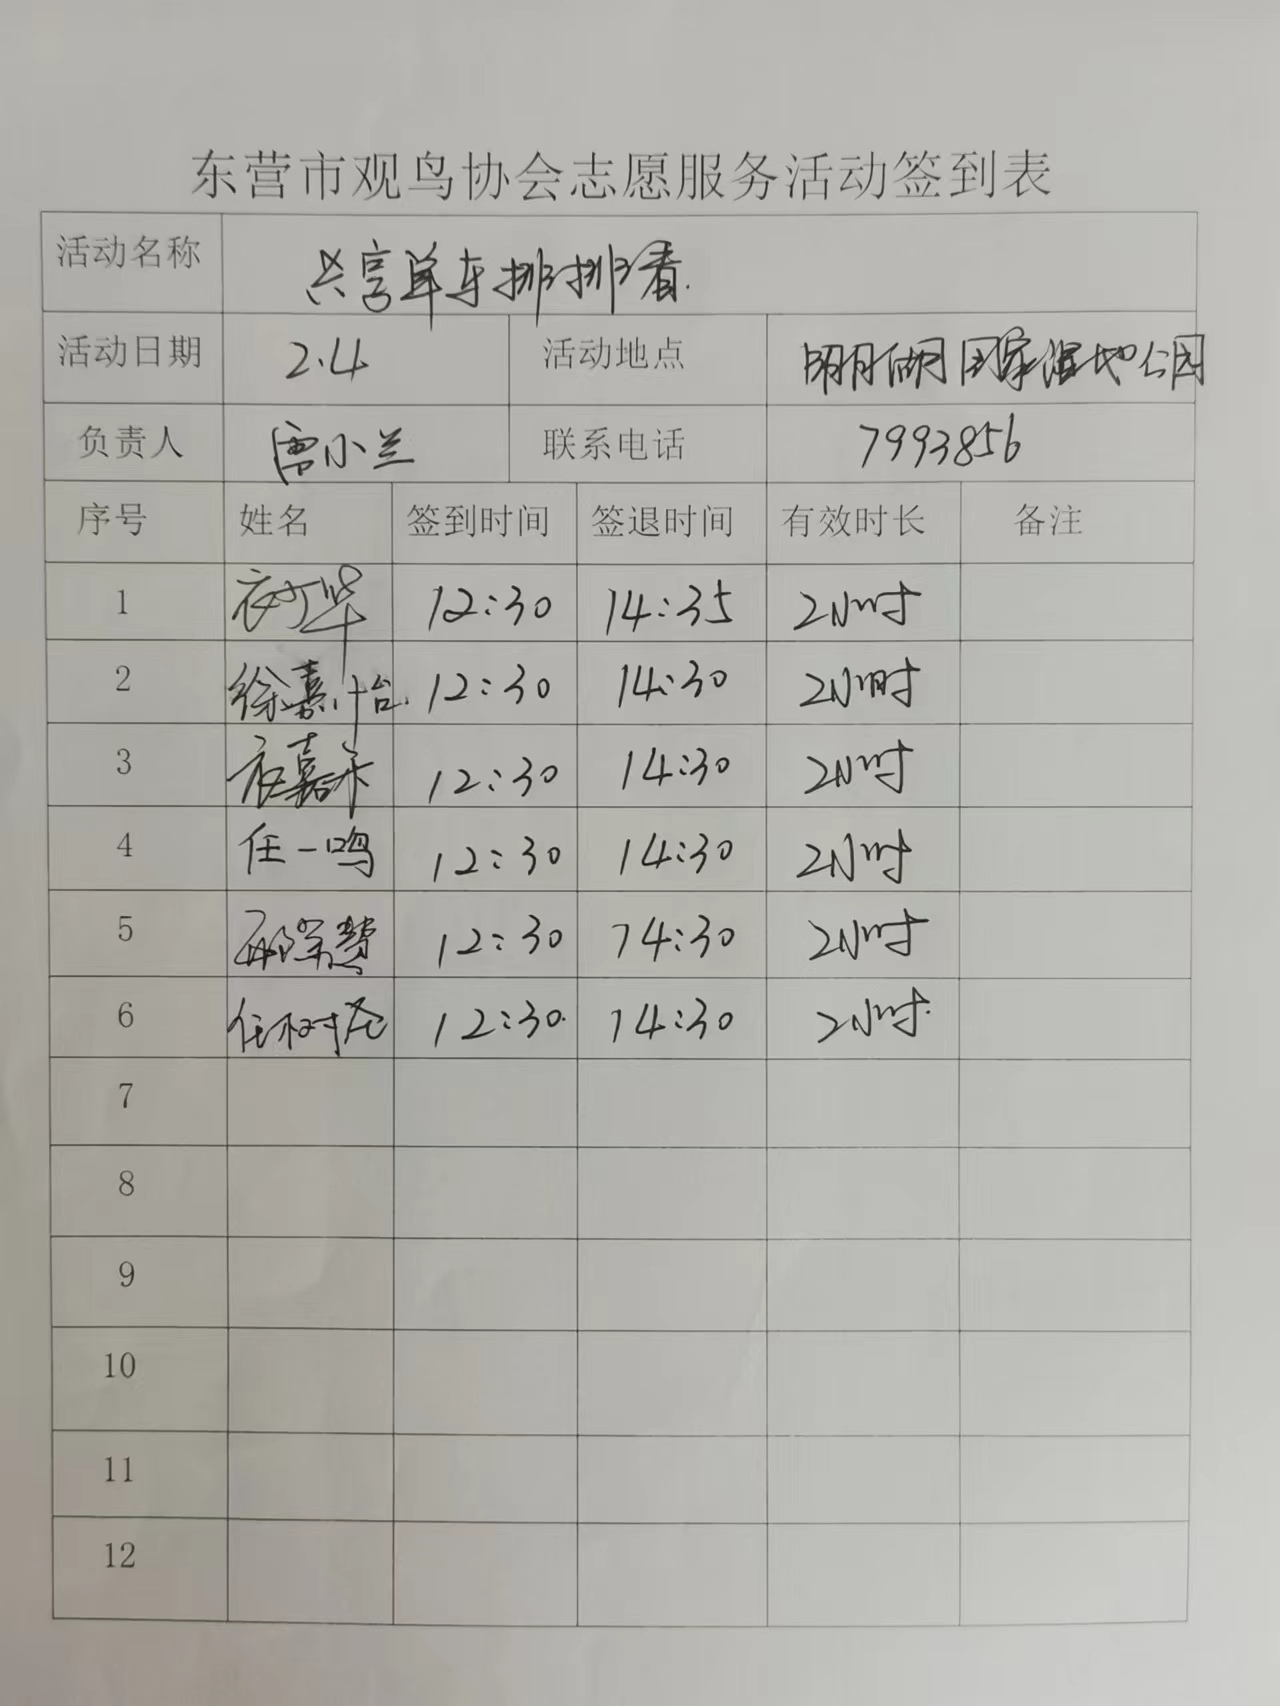 东营市观鸟协会志愿服务活动签到表
活动名称 共享单车排排看.
活动日期 2.4 活动地点 明月湖国家湿地公园
负责人 雷小兰 联系电话 7993856
序号 姓名 签到时间 签退时间 有效时长 备注
1 12:30 14:35 2小时
2 徐嘉怡 12:30 14:30 2小时
3 衣嘉禾 12:30 14:30 2小时
4 任一鸣 12:30 14:30 2小时
5 12:30 14:30 2小时
6 12:30 14:30 2小时
7
8
9
10
11
12